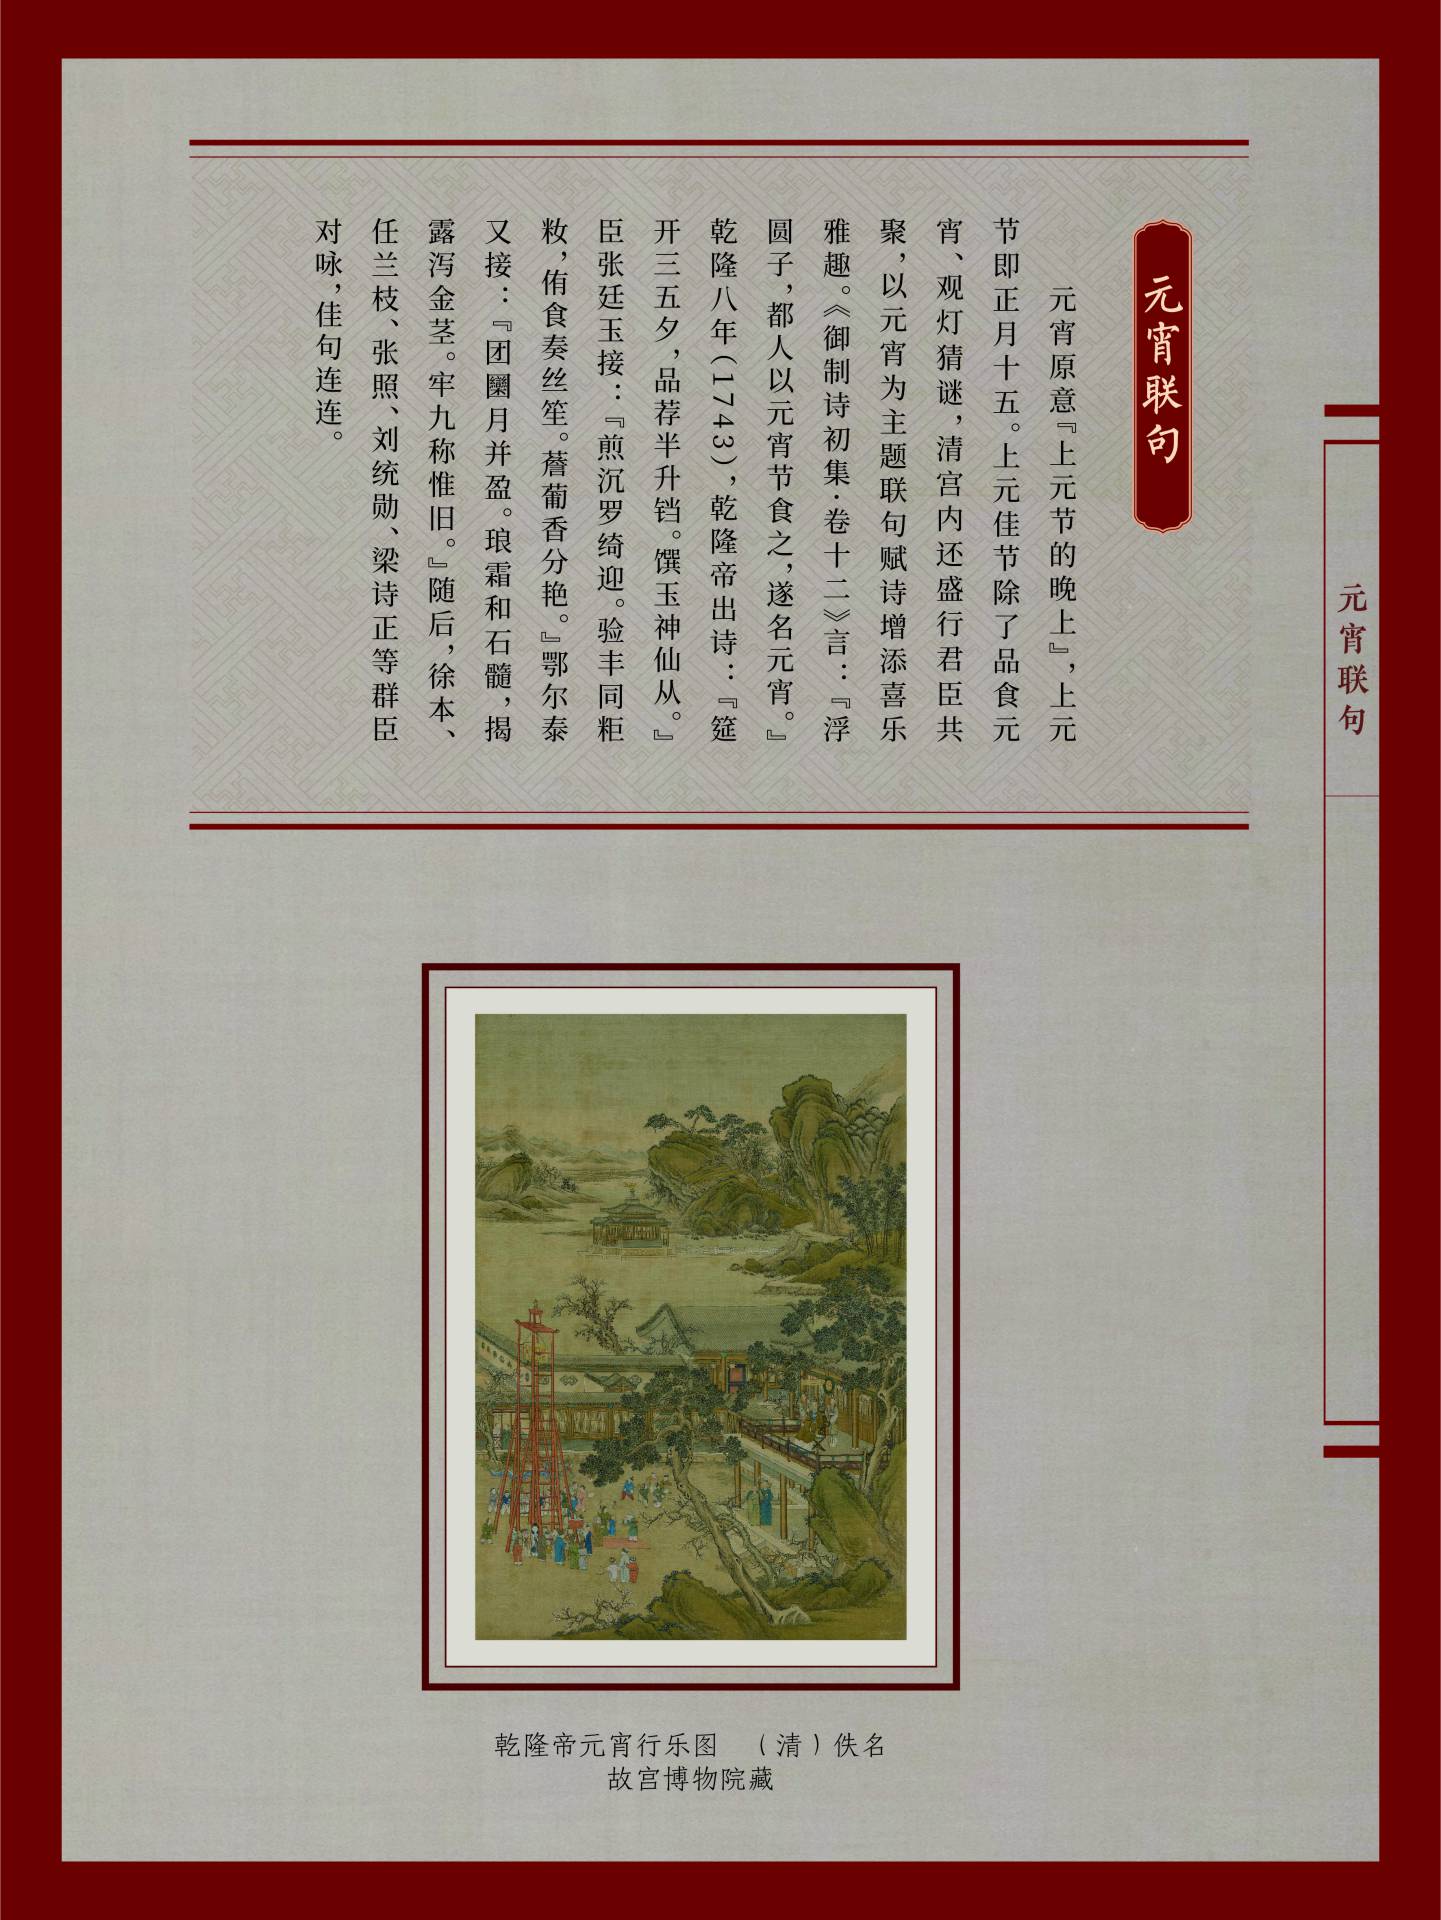 元宵联句
元宵原意『上元节的晚上』，上元
节即正月十五。上元佳节除了品食元
宵、观灯猜谜，清宫内还盛行君臣共
聚，以元宵为主题联句赋诗增添喜乐
雅趣。《御制诗初集·卷十二》言：『浮
圆子，都人以元宵节食之，遂名元宵。』
乾隆八年(1743)，乾隆帝出诗：『筵
开三五夕，品荐半升铛。馔玉神仙从。』
臣张廷玉接：『煎沉罗绮迎。验丰同粔
籹，侑食奏丝笙。薝蔔香分艳。』鄂尔泰
又接：『团圞月并盈。琅霜和石髓，揭
露泻金茎。牢九称惟旧。』随后，徐本、
任兰枝、张照、刘统勋、梁诗正等群臣
对咏，佳句连连。
元宵联句
乾隆帝元宵行乐图 （清）佚名
故宫博物院藏